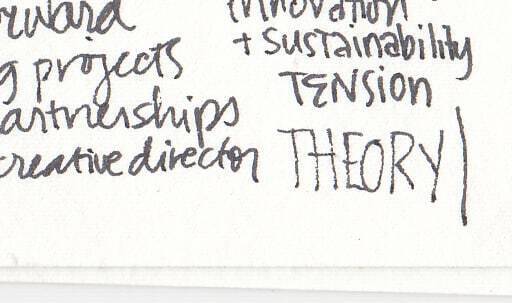 rward
g projects
artnerships
creative director
innovation
+ sustainability
TENSION
THEORY